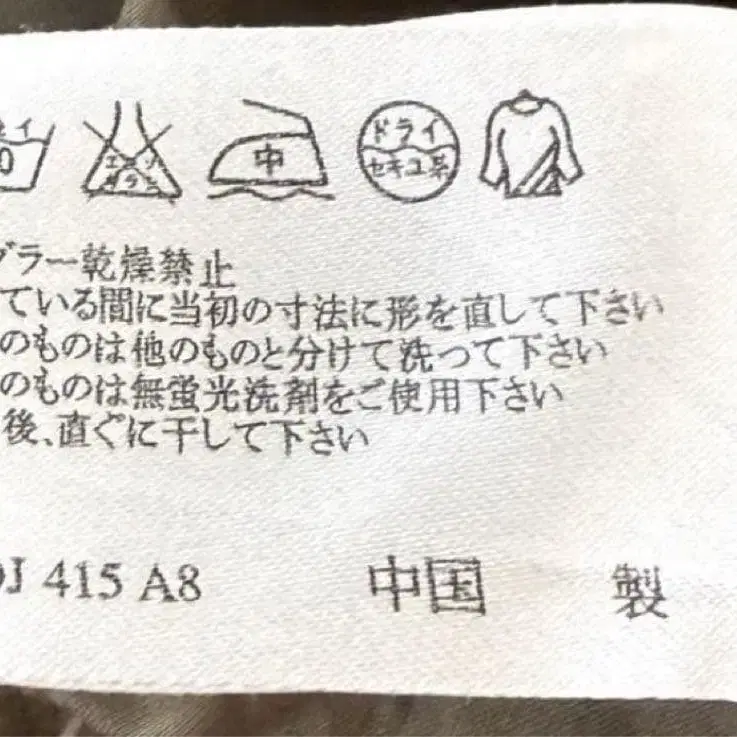 イ ドライ
0 エンソ サラシ 中 セキユ系
ブラー乾燥禁止
ている間に当初の寸法に形を直して下さい
のものは他のものと分けて洗って下さい
のものは無蛍光洗剤をご使用下さい
後、直ぐに干して下さい
J 415 A8 中国 製